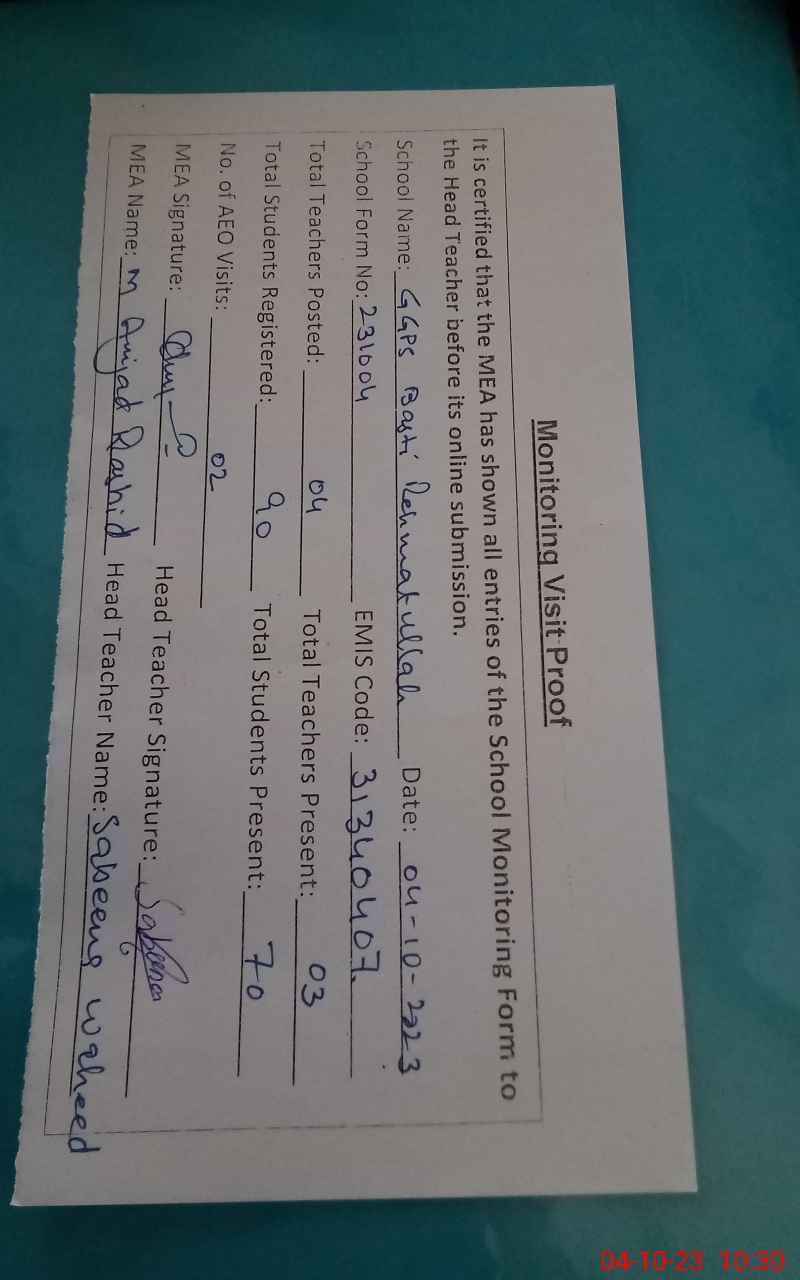 Monitoring Visit Proof
It is certified that the MEA has shown all entries of the School Monitoring Form to
the Head Teacher before its online submission.
School Name: GGPS Basti Rehmatullah Date: 04-10-2023
School Form No: 231004 EMIS Code: 31340407
Total Teachers Posted: 04 Total Teachers Present: 03
Total Students Registered: 90 Total Students Present: 70
No. of AEO Visits: 02
MEA Signature: Head Teacher Signature: Sabeena
MEA Name: M Amjad Rashid Head Teacher Name: Sabeena Waheed
04-10-23 10:30